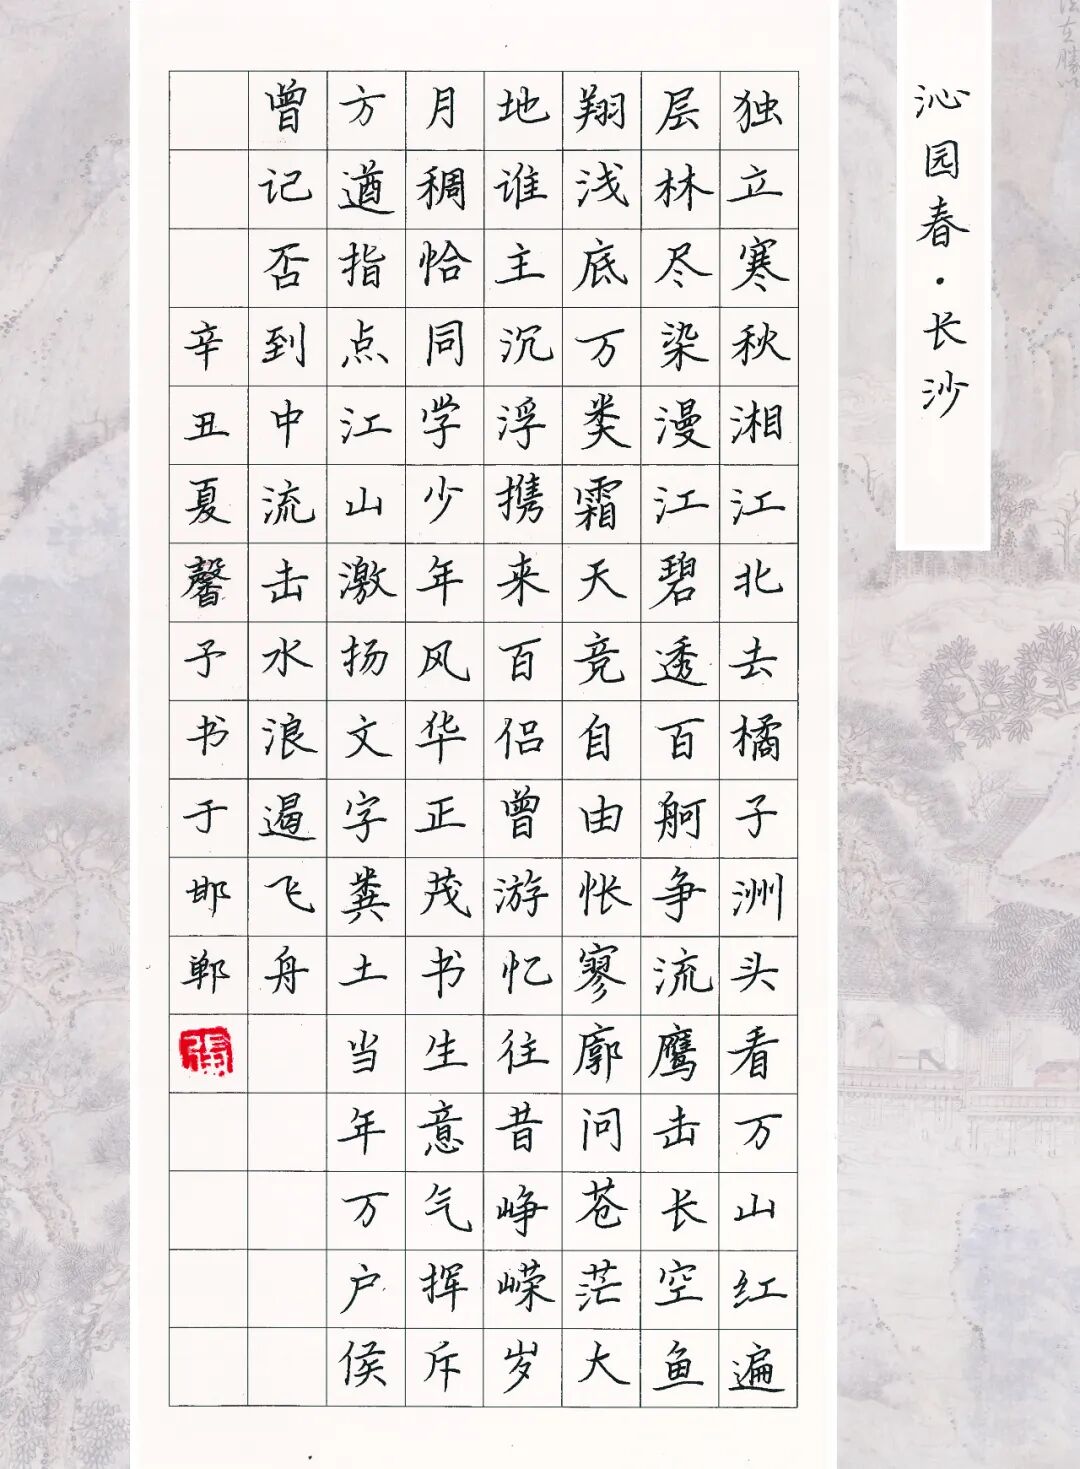 沁园春·长沙
独立寒秋湘江北去橘子洲头看万山红遍
层林尽染漫江碧透百舸争流鹰击长空鱼
翔浅底万类霜天竞自由怅寥廓问苍茫大
地谁主沉浮携来百侣曾游忆往昔峥嵘岁
月稠恰同学少年风华正茂书生意气挥斥
方遒指点江山激扬文字粪土当年万户侯
曾记否到中流击水浪遏飞舟
辛丑夏馨予书于邯郸
張